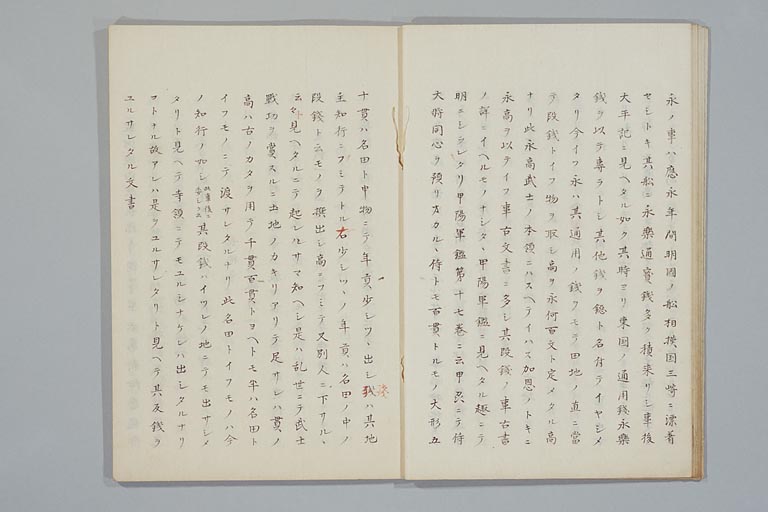 永ノ事ハ應永年間明國ノ船相摸国三崎ニ漂着
セシトキ其船ニ永樂通寳錢多ク積来リシ事後
太平記ニ見ヘタル如ク其時ヨリ東国ノ通用錢永樂
錢ヲ以テ專ラトシ其他錢ヲ鐚ト名付テイヤシメ
タリ今イフ永ハ其通用ノ錢クモテ田地ノ直ニ當
テ段錢トイフ物ヲ取シ高ヲ永何百文ト定メタル高
ナリ此永高武士ノ本領ニハスヘテイハス加恩ノトキニ
永高ヲ以テイフ事古文書ニ多シ其段錢ノ事古書
ノ詳ニイヘルモノナシタヽ甲陽軍鑑ニ見ヘタル趣ニテ
明ニシラレタリ甲陽軍鑑第十七巻ニ云甲州ニテ侍
大將同心ヲ預リ方カルヽ侍トモ百貫トルモノ大形五
十貫ハ名田ト申物ニテ年貢少シツヽ出シ我ハ其地
主知行ニフミテトル右少シツヽノ年貢ハ名田ノ中ノ
段錢ト云モノヲ撰出シ高ニフミテ又別人ニ下サルヽ
云々ト見ヘタルニテ起レルサマ知ヘシ是ハ乱世ニテ武士
戰功ヲ賞スルニ土地ノカキリアリテ足サレハ貫ノ
高ハ古ノカタヲ用テ千貫百貫トヨヘトモ半ハ名田ト
イフモノニテ渡サレタルナリ此名田トイフモノハ今
ノ知行ノ如シ其段錢ハイツレノ地ニテモ出サシメ
タリト見ヘテ寺領ニテモユルシナケレハ出シタルナリ
ヲトナル故アレハ是ヲユルサレタリト見ヘテ其反錢ヲ
ユルサレタル文書